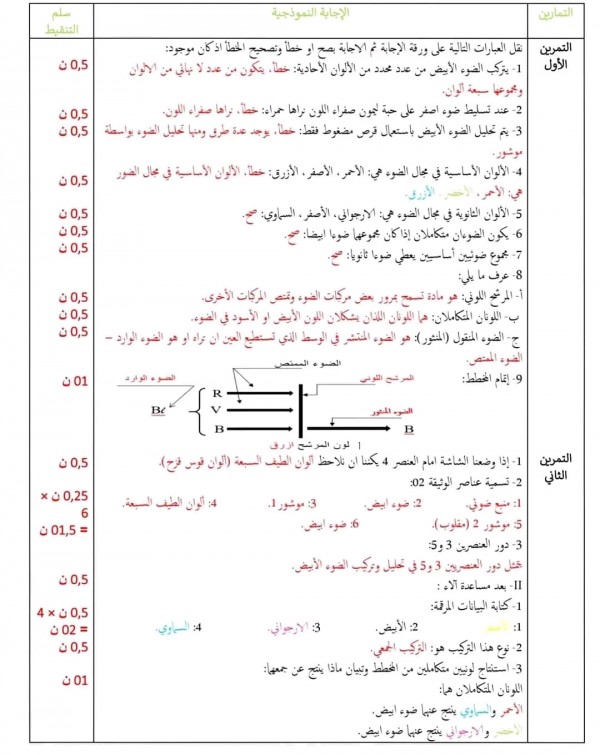 التمارين
الإجابة النموذجية
سلم التنقيط
التمرين الأول
نقل العبارات التالية على ورقة الإجابة ثم الاجابة بصح او خطأ وتصحيح الخطأ اذكان موجود:
1- يتركب الضوء الأبيض من عدد محدد من الألوان الأحادية: خطأ، يتكون من عدد لا نهائي من الالوان
ومجموعها سبعة ألوان.
0,5 ن
2- عند تسليط ضوء اصفر على حبة ليمون صفراء اللون نراها حمراء: خطأ، نراها صفراء اللون.
0,5 ن
3- يتم تحليل الضوء الأبيض باستعمال قرص مضغوط فقط: خطأ، يوجد عدة طرق ومنها تحليل الضوء بواسطة
موشور.
0,5 ن
4- الألوان الأساسية في مجال الضوء هي: الأحمر، الأصفر، الأزرق: خطأ، الألوان الأساسية في مجال الضور
هي: الأحمر، الأخضر، الأزرق.
0,5 ن
5- الألوان الثانوية في مجال الضوء هي: الارجواني، الأصفر، السماوي: صح.
0,5 ن
6- يكون الضوءان متكاملان إذا كان مجموعهما ضوءا ابيضا: صح.
0,5 ن
7- مجموع ضوئيين أساسيين يعطي ضوءا ثانويا: صح.
0,5 ن
8- عرف ما يلي:
أ- المرشح اللوني: هو مادة تسمح بمرور بعض مركبات الضوء وتمتص المركبات الأخرى.
0,5 ن
ب- اللونان المتكاملان: هما اللونان اللذان يشكلان اللون الأبيض او الأسود في الضوء.
0,5 ن
ج- الضوء المنقول (المنثور): هو الضوء المنتشر في الوسط الذي تستطيع العين ان تراه او هو الضوء الوارد –
الضوء الممتص.
0,5 ن
9- إتمام المخطط:
01 ن
الضوء الممتص
المرشح اللوني
الضوء الوارد
R
V
B
الضوء المنثور
B
لون المرشح ازرق
التمرين الثاني
1- إذا وضعنا الشاشة امام العنصر 4 يكننا ان نلاحظ ألوان الطيف السبعة (ألوان قوس قزح).
0,5 ن
2- تسمية عناصر الوثيقة 02:
1: منبع ضوئي. 2: ضوء ابيض. 3: موشور 1. 4: ألوان الطيف السبعة.
5: موشور 2 (مقلوب). 6: ضوء ابيض.
0,25 ن ×
6
= 01,5 ن
3- دور العنصرين 3 و5:
يتمثل دور العنصريين 3 و5 في تحليل وتركيب الضوء الأبيض.
0,5 ن
II- بعد مساعدة آلاء :
1- كتابة البيانات المرقمة:
1: 2: الأبيض. 3: الارجواني. 4: السماوي.
0,5 ن × 4
= 02 ن
2- نوع هذا التركيب هو: التركيب الجمعي.
0,5 ن
3- استنتاج لونيين متكاملين من المخطط وتبيان ماذا ينتج عن جمعهما:
01 ن
اللونان المتكاملان هما:
الأحمر والسماوي ينتج عنهما ضوء ابيض.
الأخضر والارجواني ينتج عنهما ضوء ابيض.